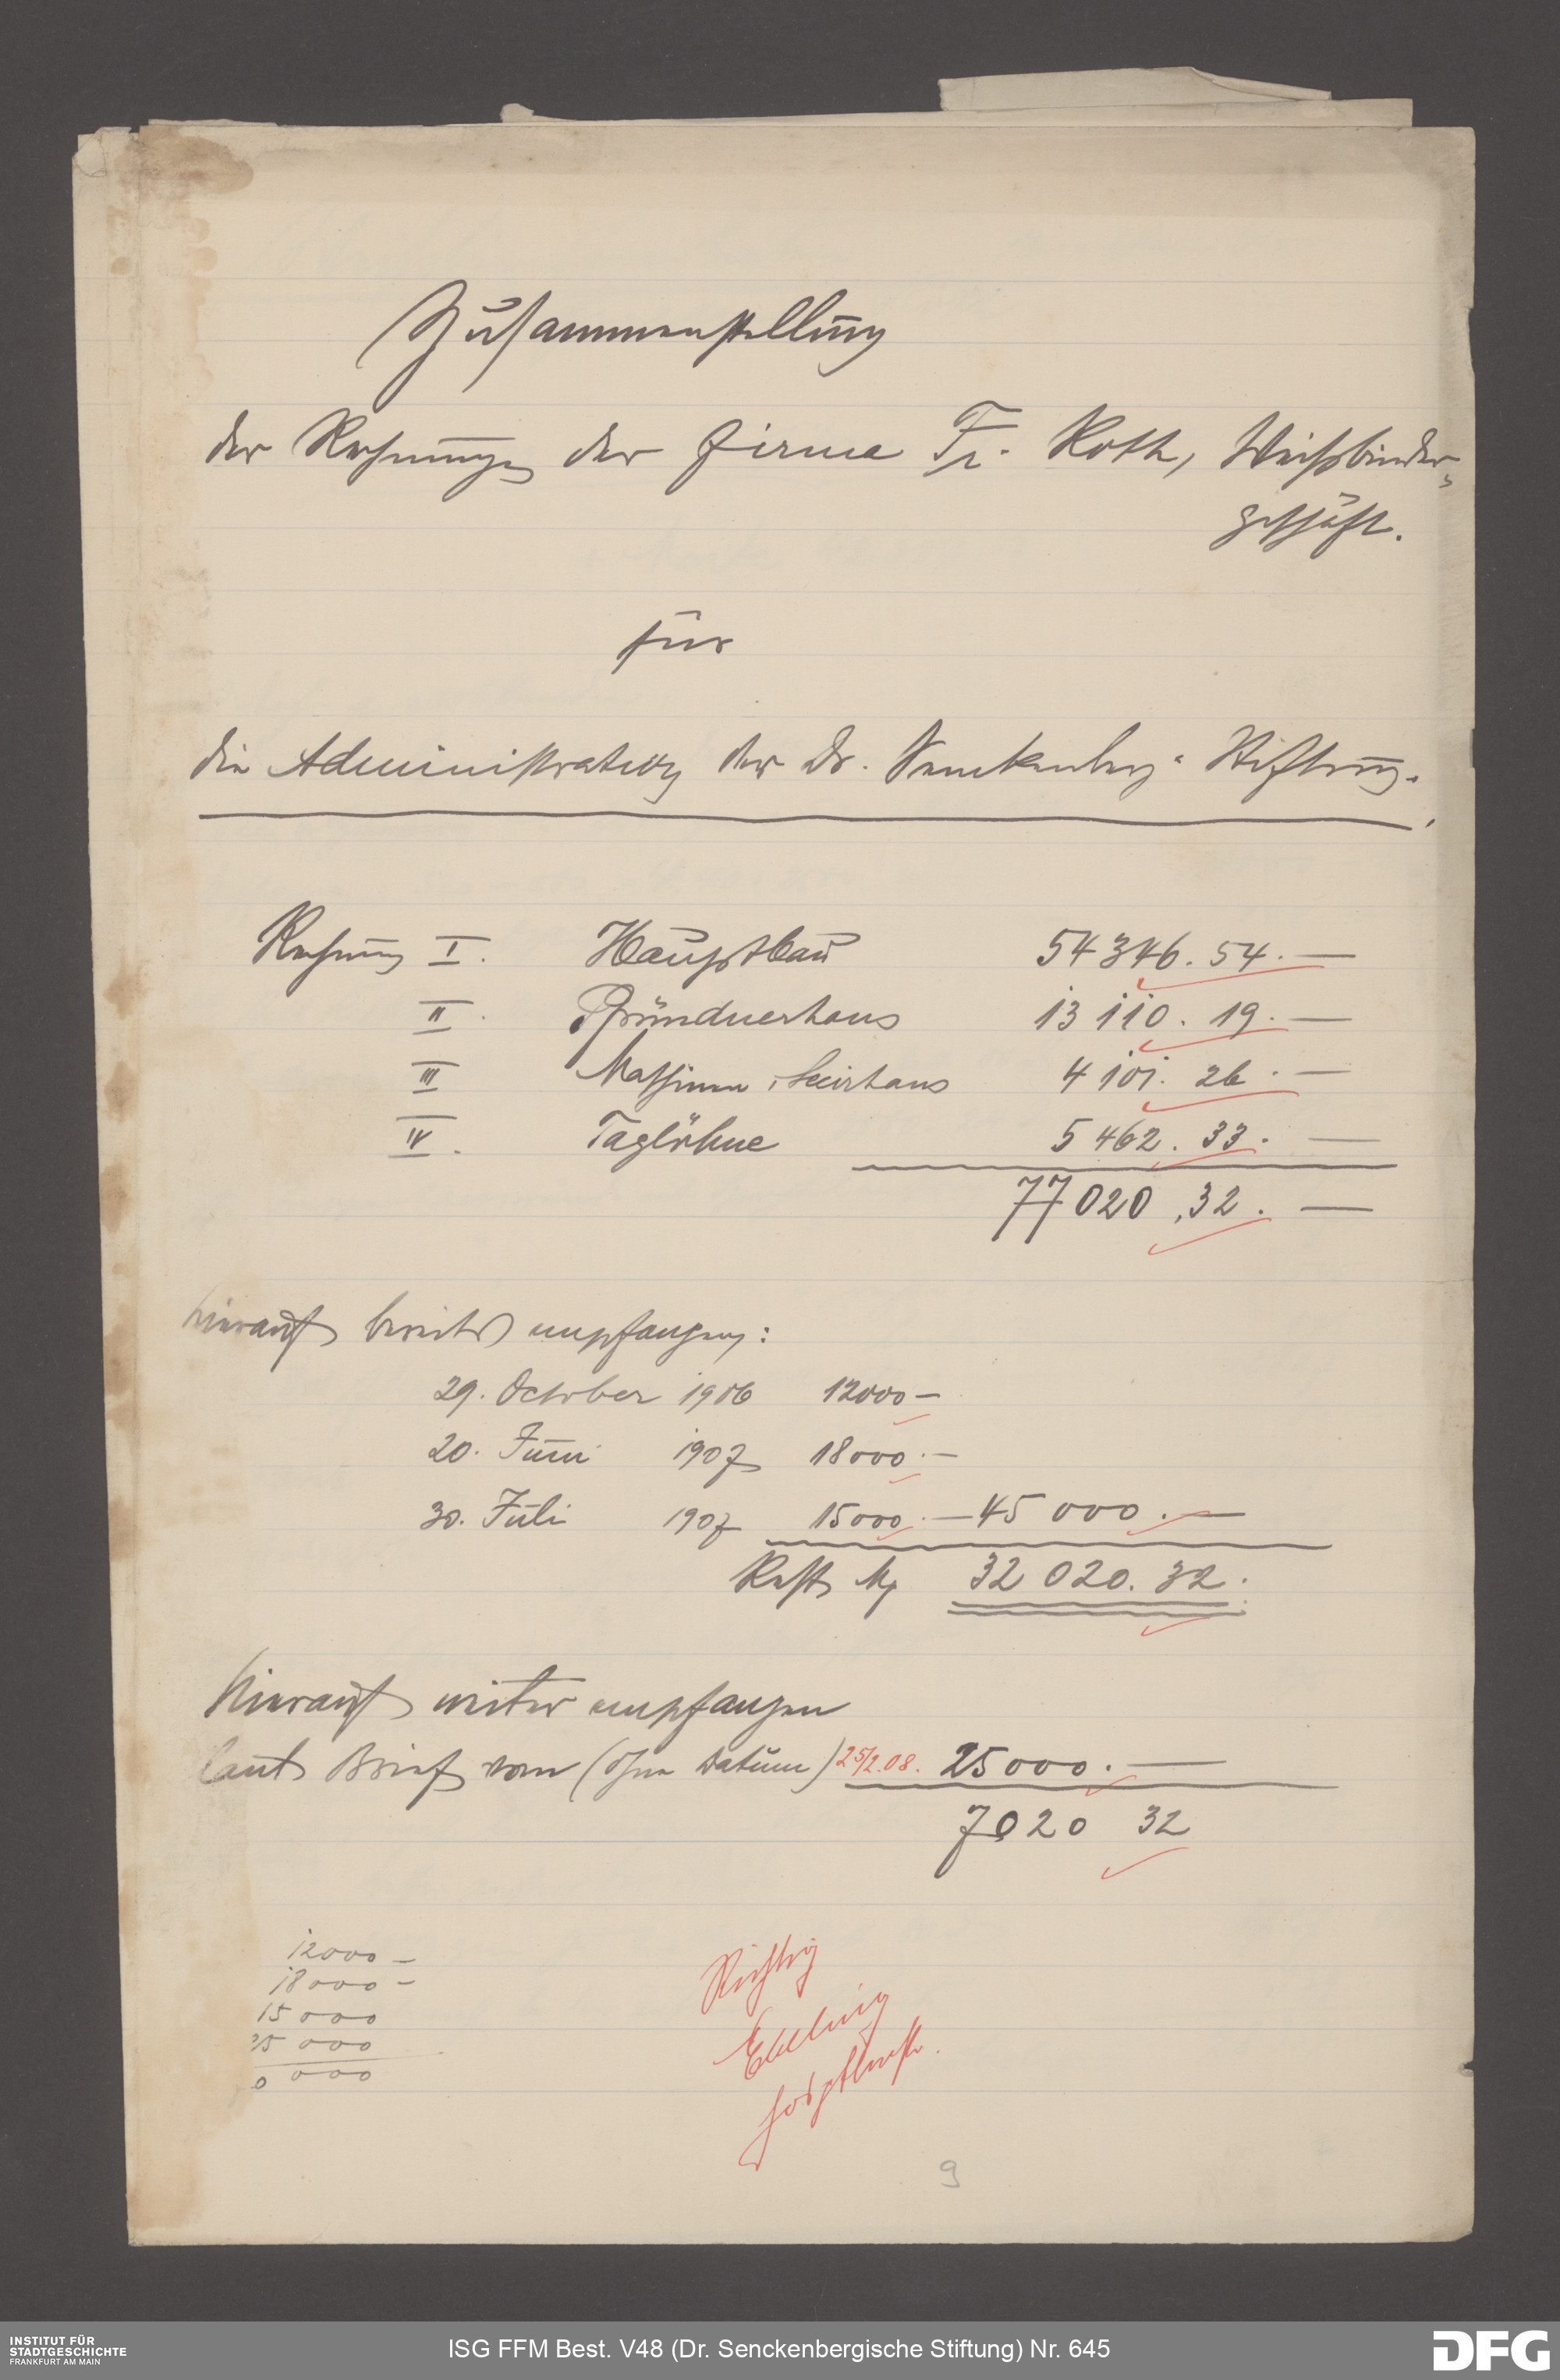 Zusammenstellung
der Rechnungen der Firma Fr. Roth, Weißbinder-
geschäft.
für
die Administration der Dr. Senckenberg. Stiftung.
Rechnung I. Hauptbau 54346.54.—
II. Pfründnerhaus 13110.19.—
III Maschinen, Leichhaus 4101.26.—
IV. Taglöhne 5462.33.—
77020,32.—
hierauf bereits empfangen:
29. October 1906 12000—
20. Juni 1907 18000.—
30. Juli 1907 15000.— 45000.—
Rest M 32020.32.
Hierauf weiter empfangen
laut Brief vom (ohne Datum) 25/2.08. 25000.—
7020 32
12000—
18000—
15000
25000
0000
Richtig
9
INSTITUT FÜR
STADTGESCHICHTE
FRANKFURT AM MAIN
ISG FFM Best. V48 (Dr. Senckenbergische Stiftung) Nr. 645
DFG